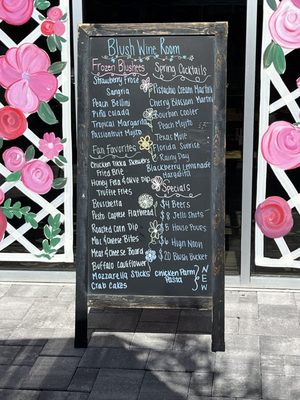 Blush Wine Room
Frozen Blushets
Strawberry Frosé
Sangria
Peach Bellini
Piña colada
Tropical Margarita
Passionfruit Mojito
Fun Favorites
Chicken Tikka Skewers
Fried Brie
Honey Feta & Olive Dip
Truffle Fries
Bruschetta
Pesto Caprese Flatbread
Roasted Corn Dip
Mac & Cheese Bites
Meat & Cheese Board
Buffalo Cauliflower
Mozzarella Sticks
Crab Cakes
Spring Cocktails
Pistachio Cream Martini
Cherry Blossom Martini
Bourbon Cooler
Peach Mojito
Texas Mule
Florida Sunrise
Rainy Day
Blackberry Lemonade
Margarita
Specials
$4 Beers
$3 Jello Shots
$5 House Pours
$6 High Noon
$20 Blush Bucket
Chicken Parm
Pasta
NEW